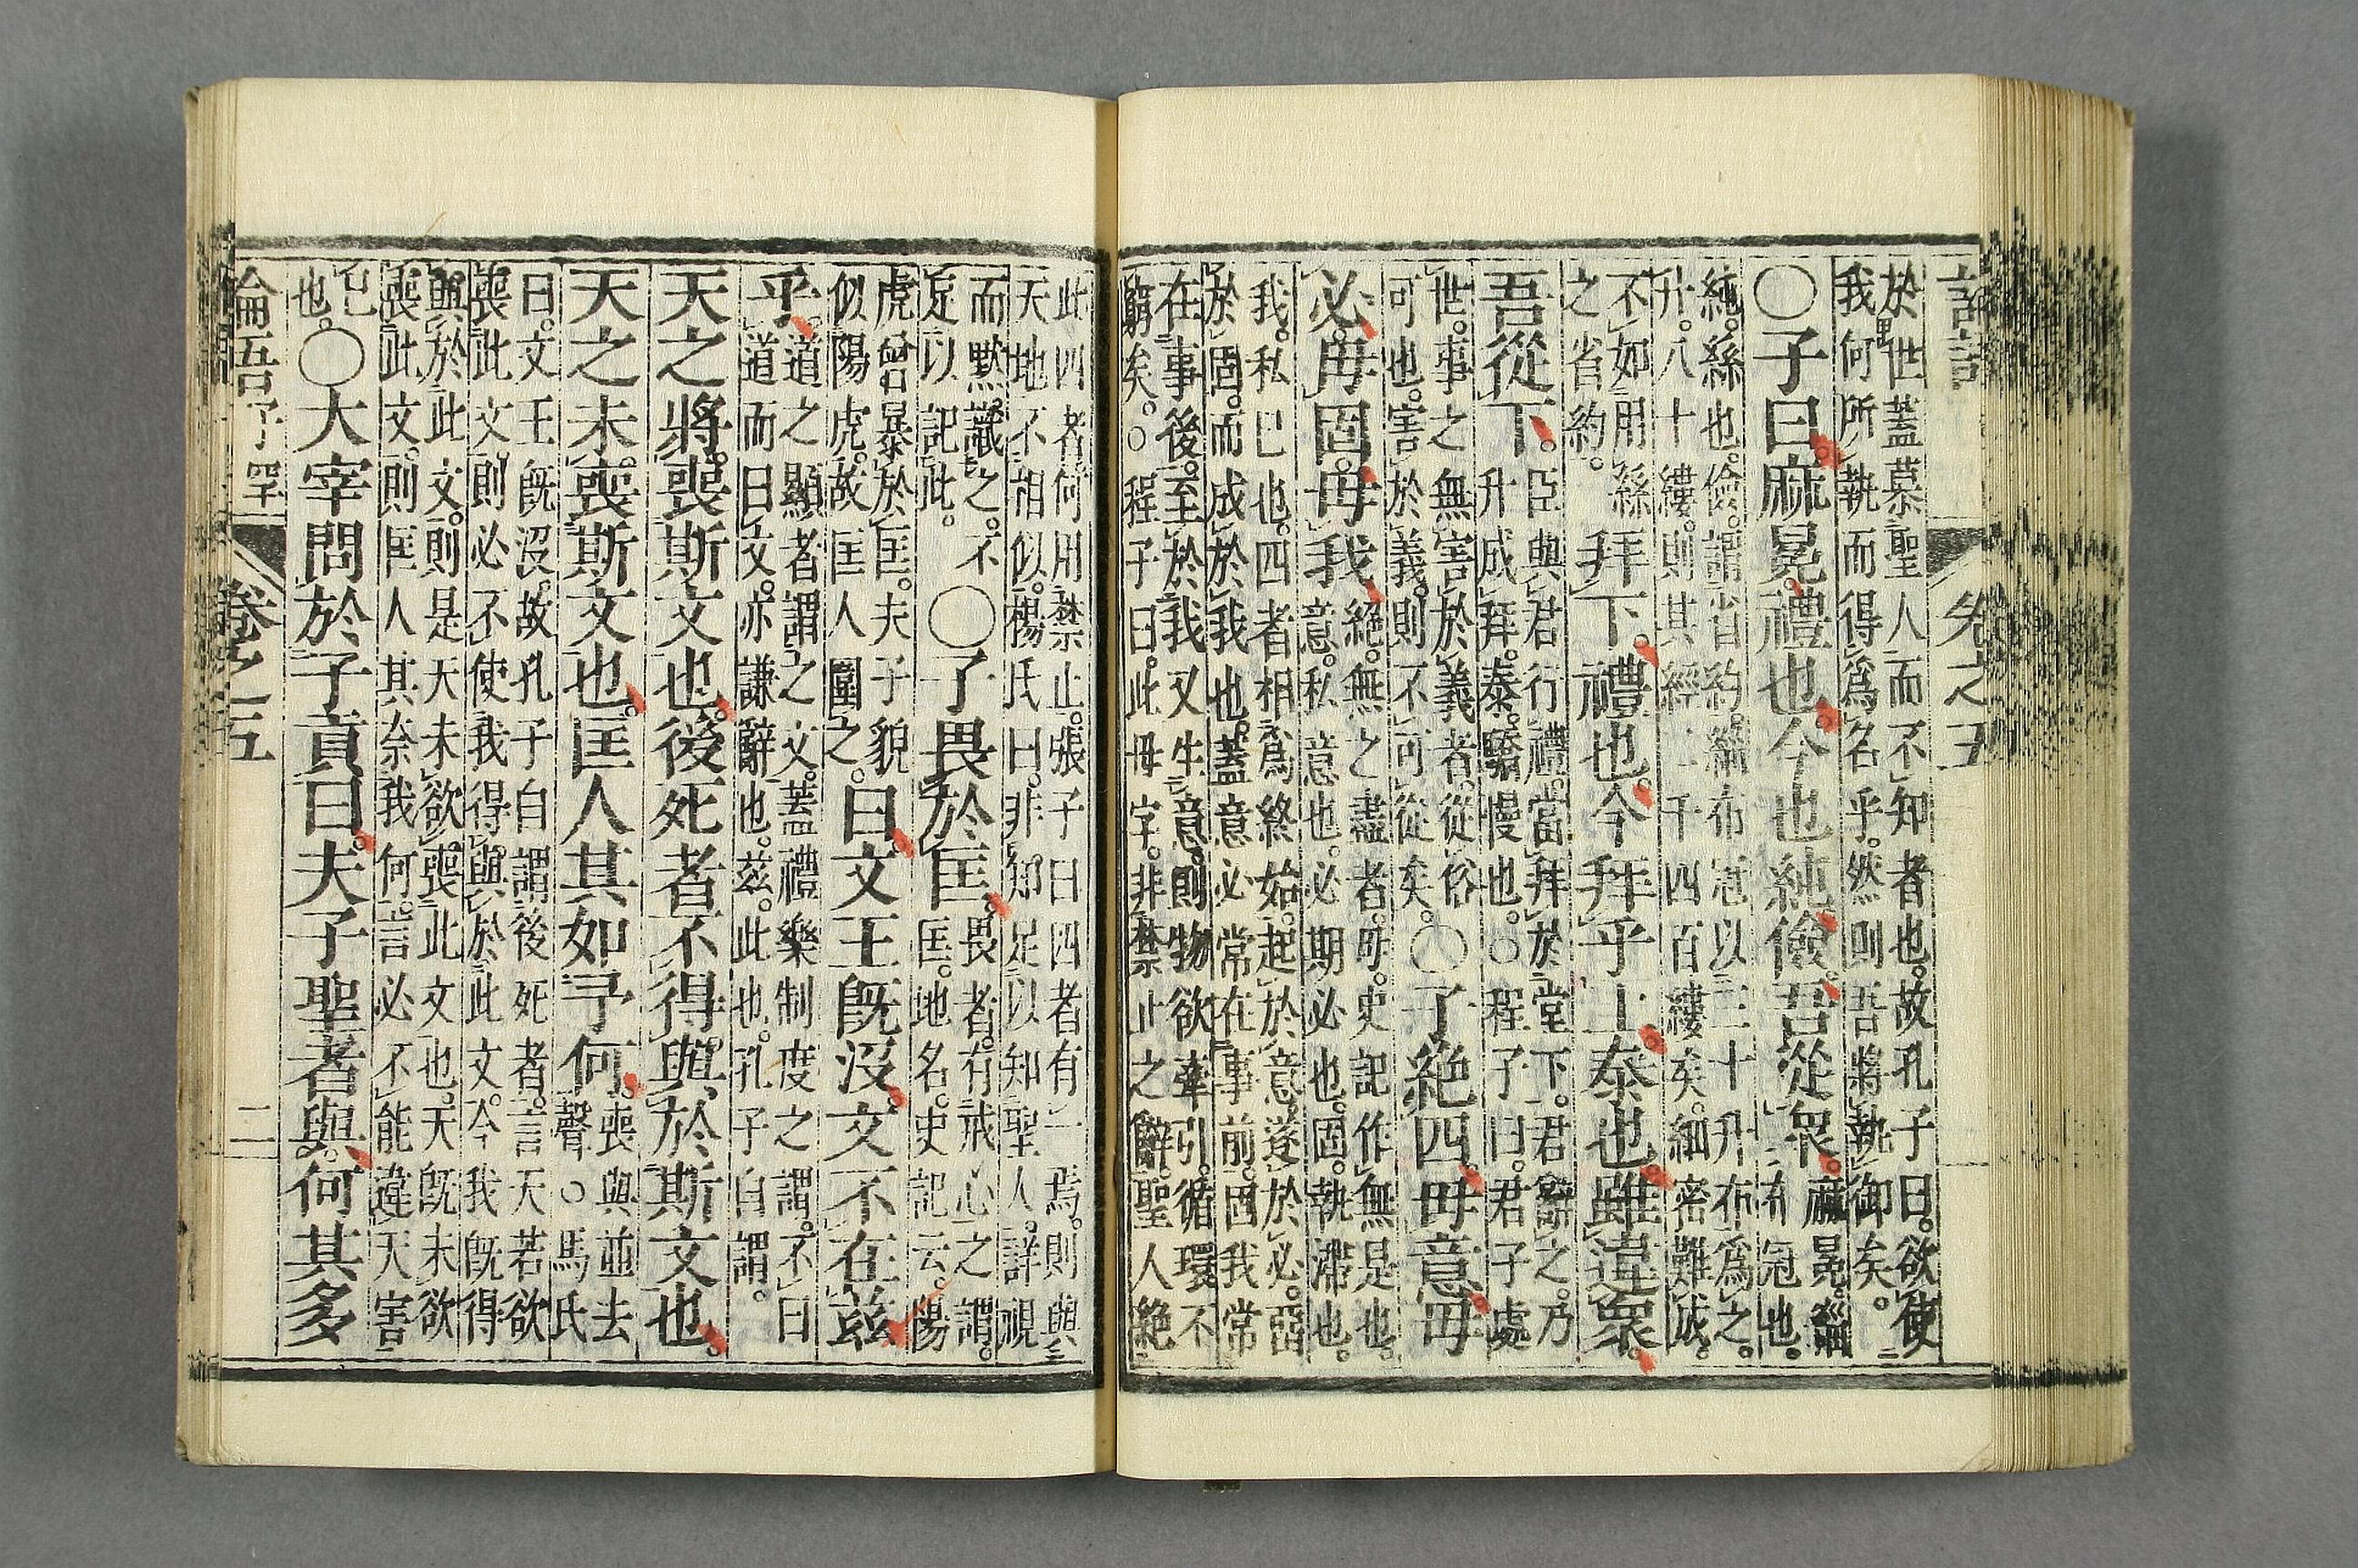 卷之五
於世蓋慕聖人而不知者也。故孔子曰。欲使
我何所執而得爲名乎。然則吾將執御矣。
〇子曰。麻冕。禮也。今也純。儉。吾從衆。麻冕。緇
布冠也。
純。絲也。儉。謂省約。緇布冠以三十升布爲之。
升。八十縷。則其經二千四百縷矣。細密難成。
不如用絲
之省約。
拜下。禮也。今拜乎上。泰也。雖違衆。
吾從下。
臣與君行禮。當拜於堂下。君辭之。乃
升成拜。泰。驕慢也。○程子曰。君子處
世。事之無害於義者。從俗
可也。害於義。則不可從矣。
〇子絶四。毋意。毋
必。毋固。毋我。
絶。無之盡者。毋。史記作無是也。
意。私意也。必。期必也。固。執滯也。
我。私己也。四者相爲終始。起於意。遂於必。留
於固。而成於我也。蓋意必常在事前。固我常
在事後。至於我又生意。則物欲牽引。循環不
窮矣。○程子曰。此毋字。非禁止之辭。聖人絶
此四者。何用禁止。張子曰。四者有一焉。則與
天地不相似。楊氏曰。非知足以知聖人。詳視
而默識之。不
足以記此。
〇子畏於匡。
畏者。有戒心之謂。
匡。地名。史記云。陽
虎曾暴於匡。夫子貌
似陽虎。故匡人圍之。
曰。文王旣沒。文不在茲
乎。
道之顯者謂之文。蓋禮樂制度之謂。不曰
道而曰文。亦謙辭也。茲。此也。孔子自謂。
天之將喪斯文也。後死者不得與於斯文也。
天之未喪斯文也。匡人其如予何。
喪與並去
聲。○馬氏
曰。文王旣沒。故孔子自謂後死者。言天若欲
喪此文。則必不使我得與於此文。今我旣得
與於此文。則是天未欲喪此文也。天旣未欲
喪此文。則匡人其奈我何。言必不能違天害
己
也。
〇大宰問於子貢曰。夫子聖者與。何其多
論語子罕 卷之五 二